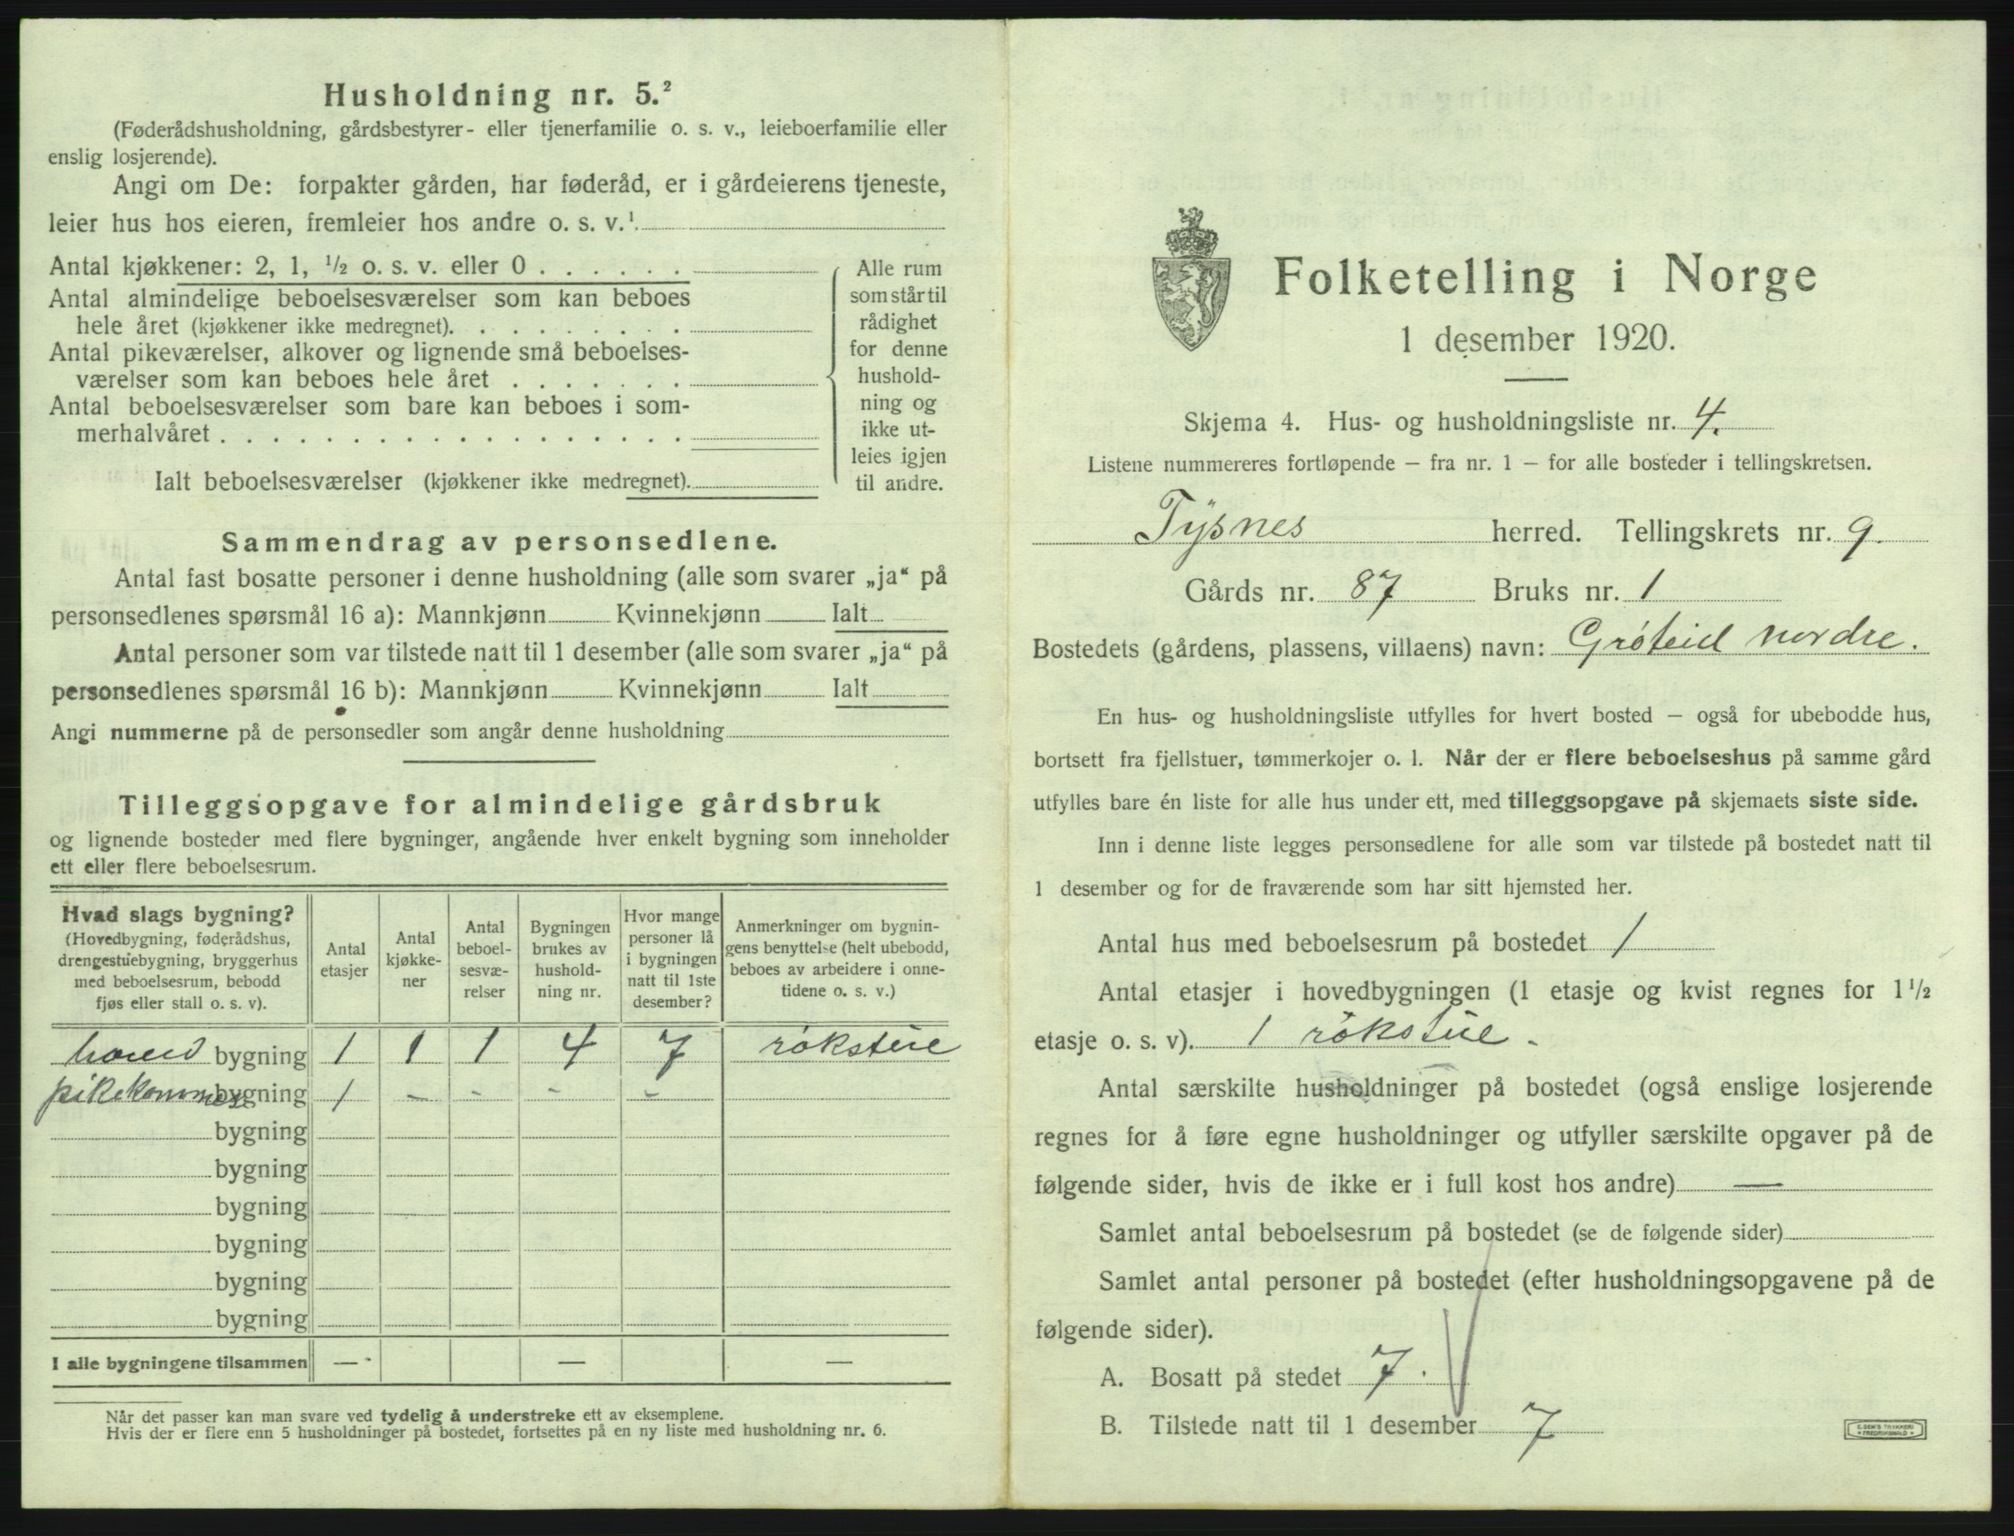 Husholdning nr. 5.²
(Føderådshusholdning, gårdsbestyrer- eller tjenerfamilie o. s. v., leieboerfamilie eller
enslig losjerende).
Angi om De: forpakter gården, har føderåd, er i gårdeierens tjeneste,
leier hus hos eieren, fremleier hos andre o. s. v.¹
Antal kjøkkener: 2, 1, ½ o. s. v. eller 0 . . . . . .
Antal almindelige beboelsesværelser som kan beboes
hele året (kjøkkener ikke medregnet). . . . . . . . .
Antal pikeværelser, alkover og lignende små beboelses-
værelser som kan beboes hele året . . . . . . .
Antal beboelsesværelser som bare kan beboes i som-
merhalvåret . . . . . . . . . . . . . . . . . .
Ialt beboelsesværelser (kjøkkener ikke medregnet).
Alle rum
som står til
rådighet
for denne
hushold-
ning og
ikke ut-
leies igjen
til andre.
Sammendrag av personsedlene.
Antal fast bosatte personer i denne husholdning (alle som svarer „ja“ på
personsedlenes spørsmål 16 a): Mannkjønn Kvinnekjønn Ialt
Antal personer som var tilstede natt til 1 desember (alle som svarer „ja“ på
personsedlenes spørsmål 16 b): Mannkjønn Kvinnekjønn Ialt
Angi nummerne på de personsedler som angår denne husholdning
Tilleggsopgave for almindelige gårdsbruk
og lignende bosteder med flere bygninger, angående hver enkelt bygning som inneholder
ett eller flere beboelsesrum.
Hvad slags bygning?
(Hovedbygning, føderådshus,
drengestuebygning, bryggerhus
med beboelsesrum, bebodd
fjøs eller stall o. s. v).
Antal
etasjer
Antal
kjøkke-
ner
Antal
beboel-
sesvæ-
relser
Bygningen
brukes av
hushold-
ning nr.
Hvor mange
personer lå
i bygningen
natt til 1ste
desember?
Anmerkninger om bygnin-
gens benyttelse (helt ubebodd,
beboes av arbeidere i onne-
tidene o. s. v.)
hoved bygning 1 1 1 4 7 rökstue
pikekammer bygning 1 - - - -
bygning
bygning
bygning
bygning
bygning
bygning
I alle bygningene tilsammen — — —
Når det passer kan man svare ved tydelig å understreke ett av eksemplene.
Hvis der er flere enn 5 husholdninger på bostedet, fortsettes på en ny liste med husholdning nr. 6.
Folketelling i Norge
1 desember 1920.
Skjema 4. Hus- og husholdningsliste nr. 4.
Listene nummereres fortløpende – fra nr. 1 – for alle bosteder i tellingskretsen.
Tysnes herred. Tellingskrets nr. 9.
Gårds nr. 87 Bruks nr. 1
Bostedets (gårdens, plassens, villaens) navn: Gröteid nordre.
En hus- og husholdningsliste utfylles for hvert bosted – også for ubebodde hus,
bortsett fra fjellstuer, tømmerkojer o. l. Når der er flere beboelseshus på samme gård
utfylles bare én liste for alle hus under ett, med tilleggsopgave på skjemaets siste side.
Inn i denne liste legges personsedlene for alle som var tilstede på bostedet natt til
1 desember og for de fraværende som har sitt hjemsted her.
Antal hus med beboelsesrum på bostedet 1
Antal etasjer i hovedbygningen (1 etasje og kvist regnes for 1½
etasje o. s. v). 1 rökstue.
Antal særskilte husholdninger på bostedet (også enslige losjerende
regnes for å føre egne husholdninger og utfyller særskilte opgaver på de
følgende sider, hvis de ikke er i full kost hos andre) —
Samlet antal beboelsesrum på bostedet (se de følgende sider)
Samlet antal personer på bostedet (efter husholdningsopgavene på de
følgende sider).
A. Bosatt på stedet 7.
B. Tilstede natt til 1 desember 7